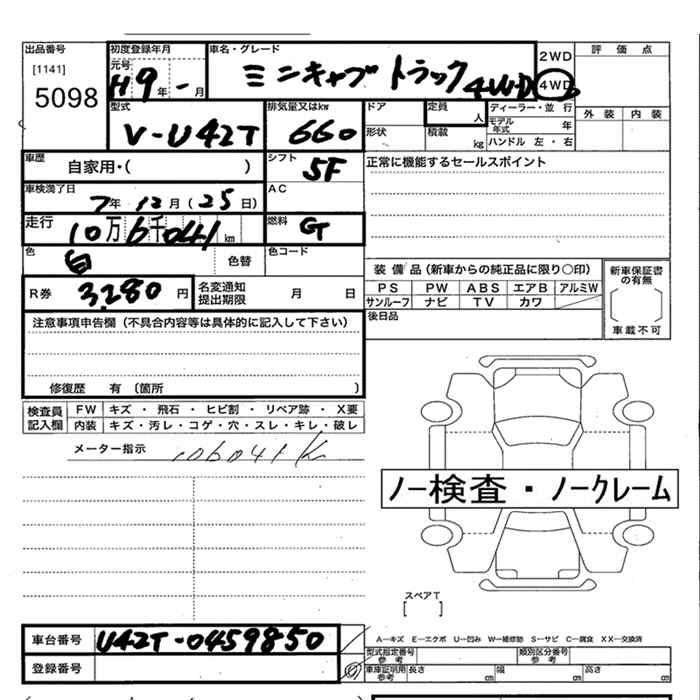 出品番号 初度登録年月 車名・グレード 評価点
[1141] 元号 2WD
5098 H9年-月 ミニキャブトラック4WD 4WD
型式 排気量又はkw ドア 定員 人 ディーラー・並行 外装 内装
V-U42T 660 形状 積載 kg モデル年式 年
ハンドル 左・右
車歴 シフト 正常に機能するセールスポイント
自家用・( ) 5F
車検満了日 AC
7年12月(25日)
走行 燃料
10万6千041km G
色 色コード
白 色替 装備品(新車からの純正品に限り○印) 新車保証書の有無
R券 3,280円 名変通知提出期限 月 日 PS PW ABS エアB アルミW
サンルーフ ナビ TV カワ
注意事項申告欄(不具合内容等は具体的に記入して下さい) 後日品 車載不可
修復歴 有(箇所 )
検査員記入欄 FW キズ・飛石・ヒビ割・リペア跡・X要
内装 キズ・汚レ・コゲ・穴・スレ・キレ・破レ
メーター指示 106041K
ノー検査・ノークレーム
スペアT
[ ]
車台番号 U42T-0459850 A-キズ E-エクボ U-凹み W-補修跡 S-サビ C-腐食 XX-交換済
型式指定番号 参考 類別区分番号 参考
登録番号 車庫証明用 参考 長さ cm 幅 cm 高さ cm